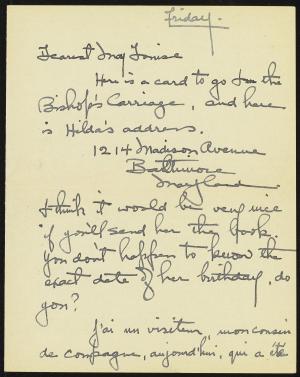 Friday.
Dearest May Louise
Here is a card to go in the
Bishop's Carriage, and here
is Hilda's address.
1214 Madison Avenue
Baltimore
Maryland.
I think it would be very nice
if you'll send her the book.
You don't happen to know the
exact date of her birthday, do
you?
J'ai un visiteur, mon cousin
de campagne, aujourd'hui, qui a été